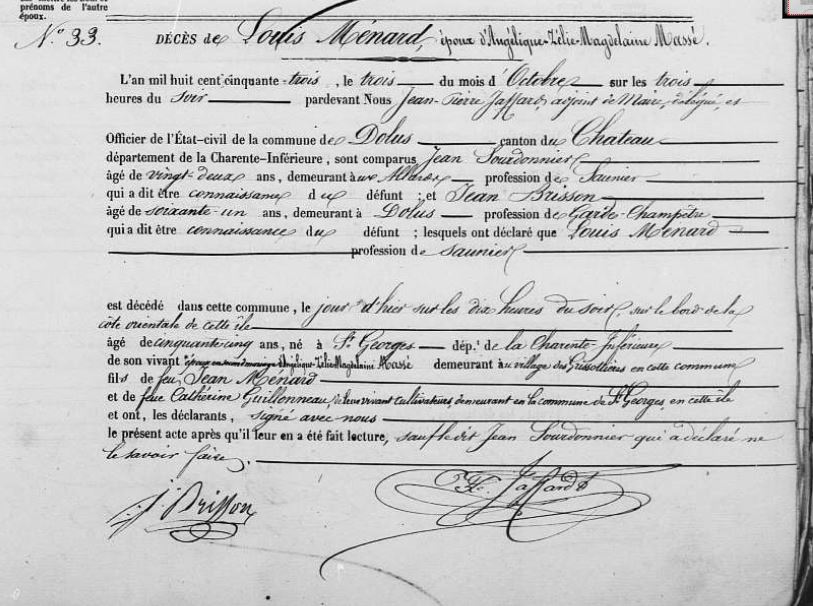 prénoms de l'autre
époux.
N.° 33.
DÉCÈS de Louis Ménard, époux d'Angélique-Zélie-Magdelaine Massé.
L'an mil huit cent cinquante-trois, le trois du mois d'Octobre sur les trois
heures du soir pardevant Nous Jean-Pierre Jaffard, adjoint de Maire, délégué, et
Officier de l'État-civil de la commune de Dolus canton du Chateau
département de la Charente-Inférieure, sont comparus Jean Sourdonnier
âgé de vingt-deux ans, demeurant aux Allards profession de Saunier
qui a dit être connaissance du défunt ; et Jean Brisson
âgé de soixante-un ans, demeurant à Dolus profession de Garde-Champêtre
qui a dit être connaissance du défunt ; lesquels ont déclaré que Louis Menard
profession de saunier
est décédé dans cette commune, le jour d'hier sur les dix heures du soir, sur le bord de la
côte orientale de cette île
âgé de cinquante cinq ans, né à S.t Georges dép.t de la Charente-Inférieure
de son vivant époux en mariage d'Angélique-Zélie-Magdelaine Massé demeurant au village des Grissotières en cette commune
fils de feu Jean Menard
et de feue Catherine Guillonneau, de leur vivant cultivateurs, demeurant en la commune de S.t Georges, en cette île
et ont, les déclarants, signé avec nous
le présent acte après qu'il leur en a été fait lecture, sauf ledit Jean Sourdonnier qui a déclaré ne
le savoir faire.
J. Brisson
Jaffard